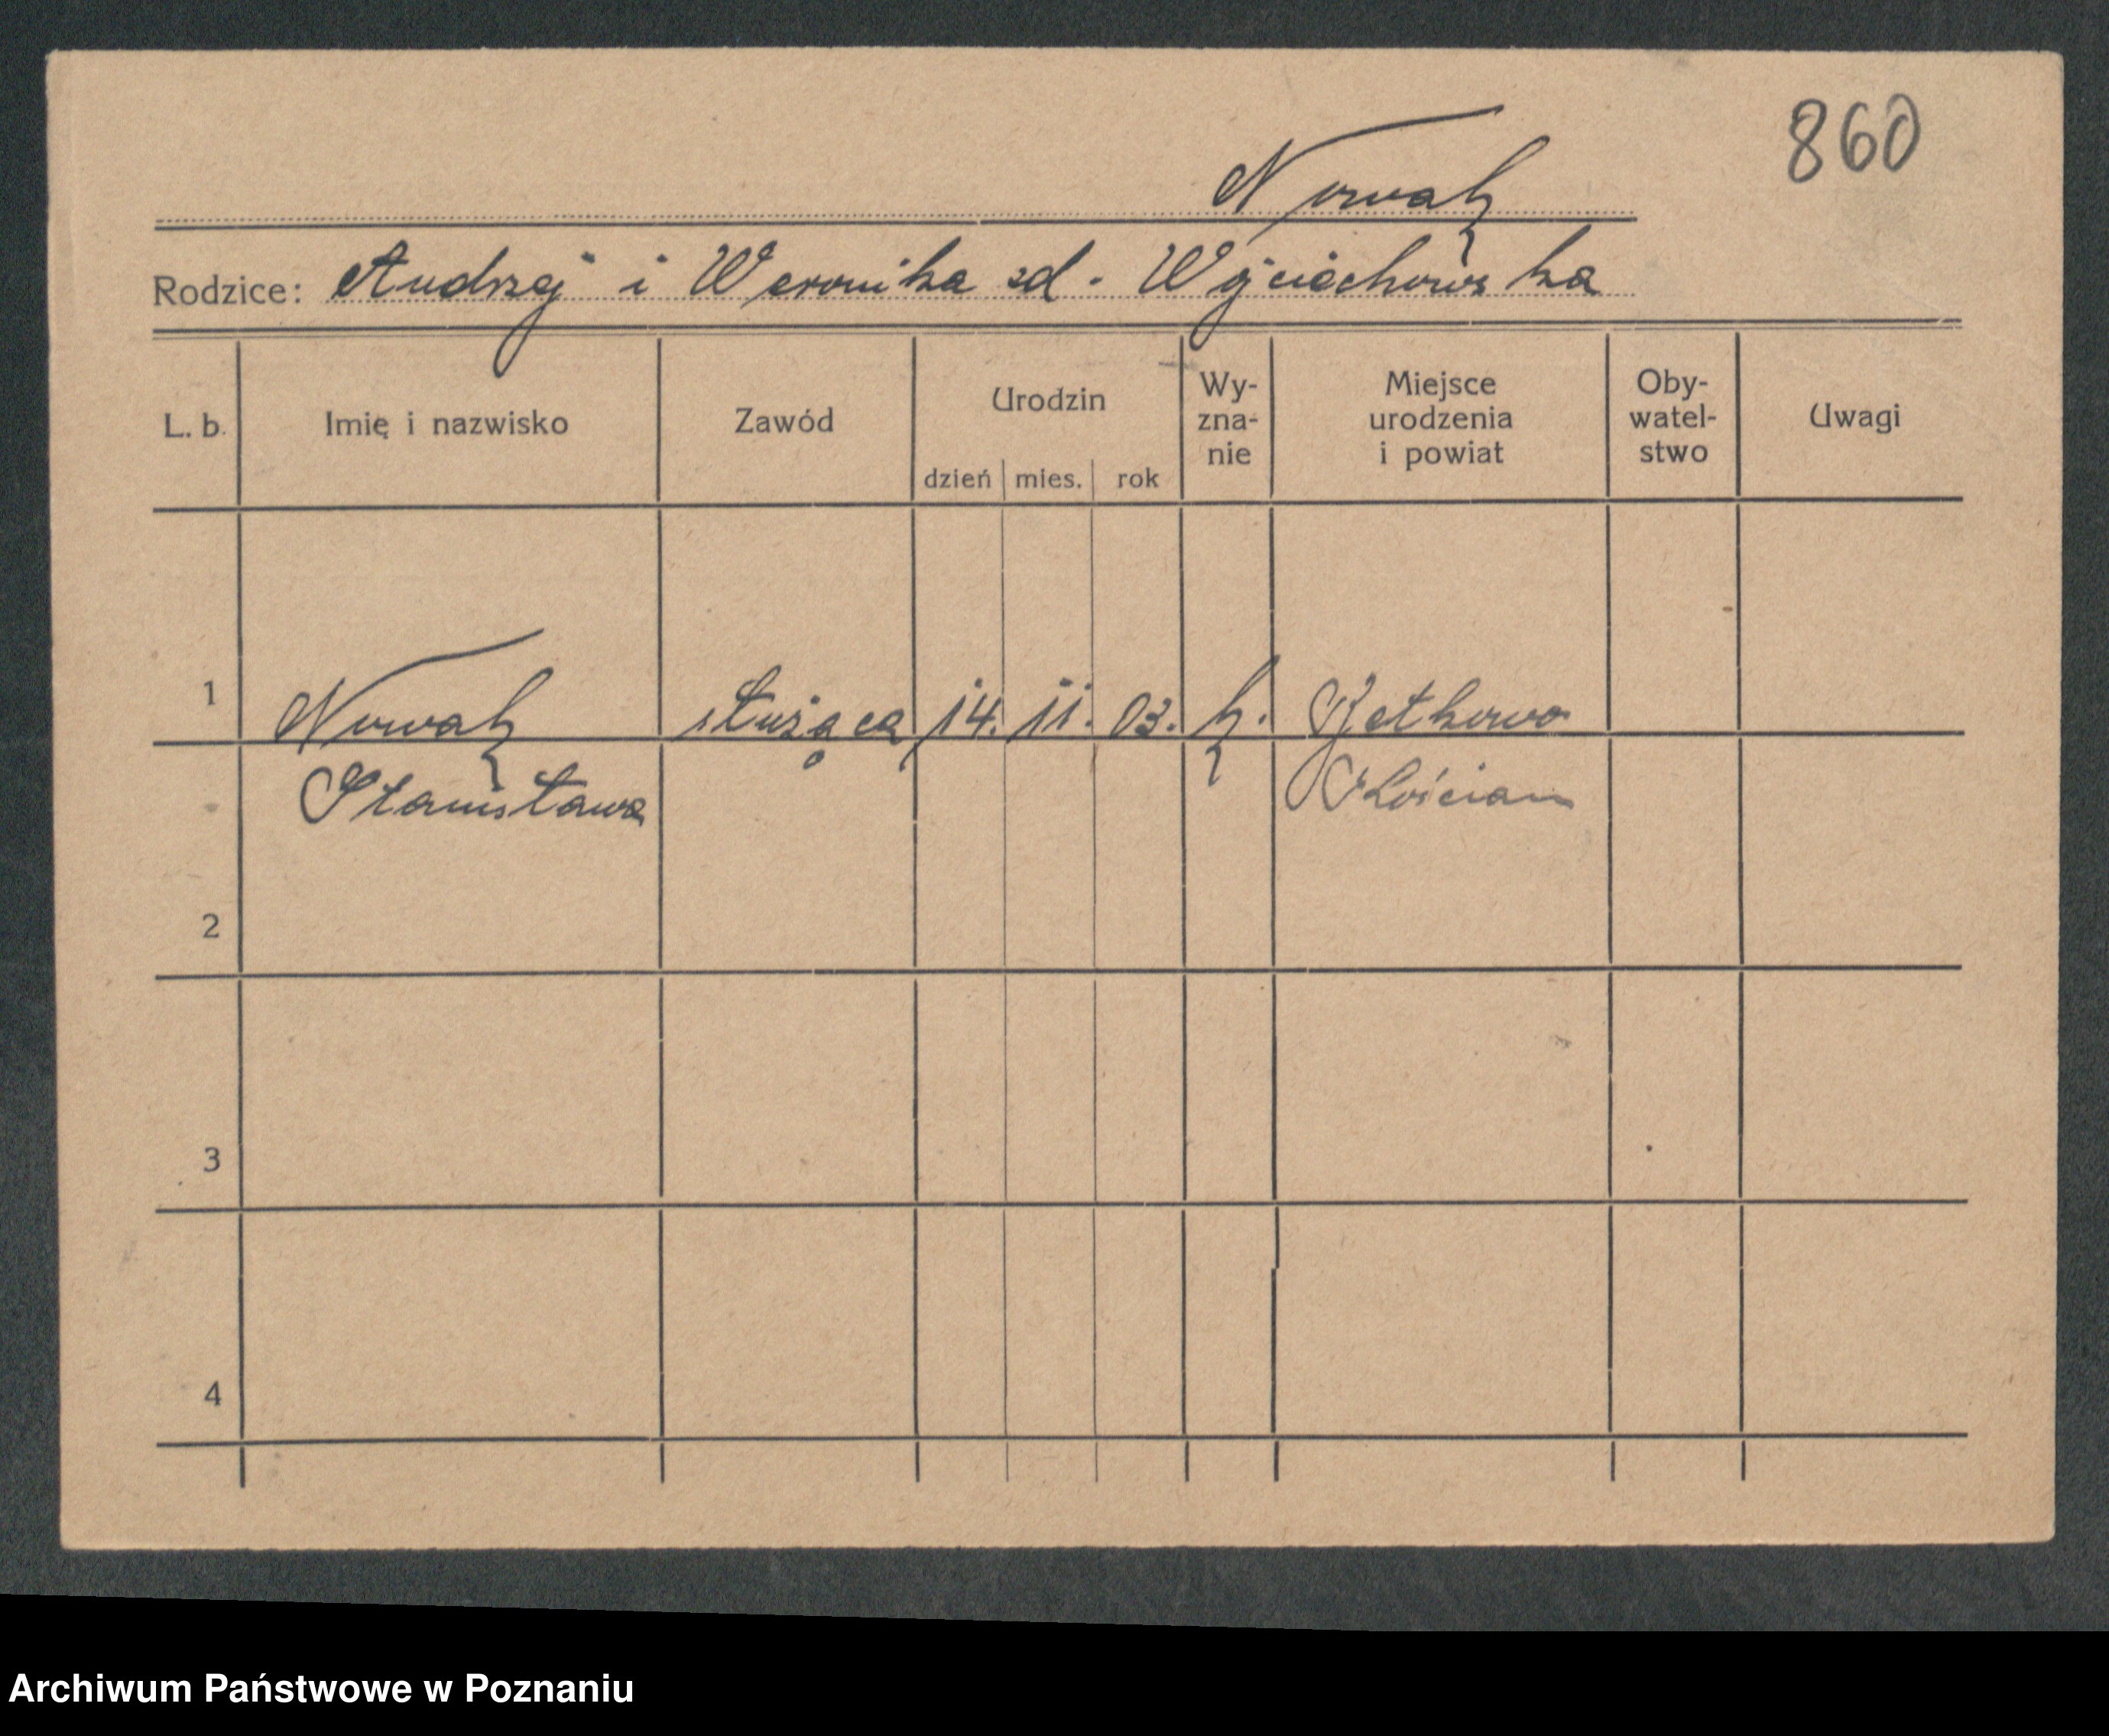 860
Nowak
Rodzice: Andrzej i Weronika zd. Wojciechowska
L. b. Imię i nazwisko Zawód Urodzin dzień mies. rok Wy-zna-nie Miejsce urodzenia i powiat Oby-watel-stwo Uwagi
1 Nowak służąca 14. 11. 03. k.
Stanisława Kościan
2
3
4
Archiwum Państwowe w Poznaniu